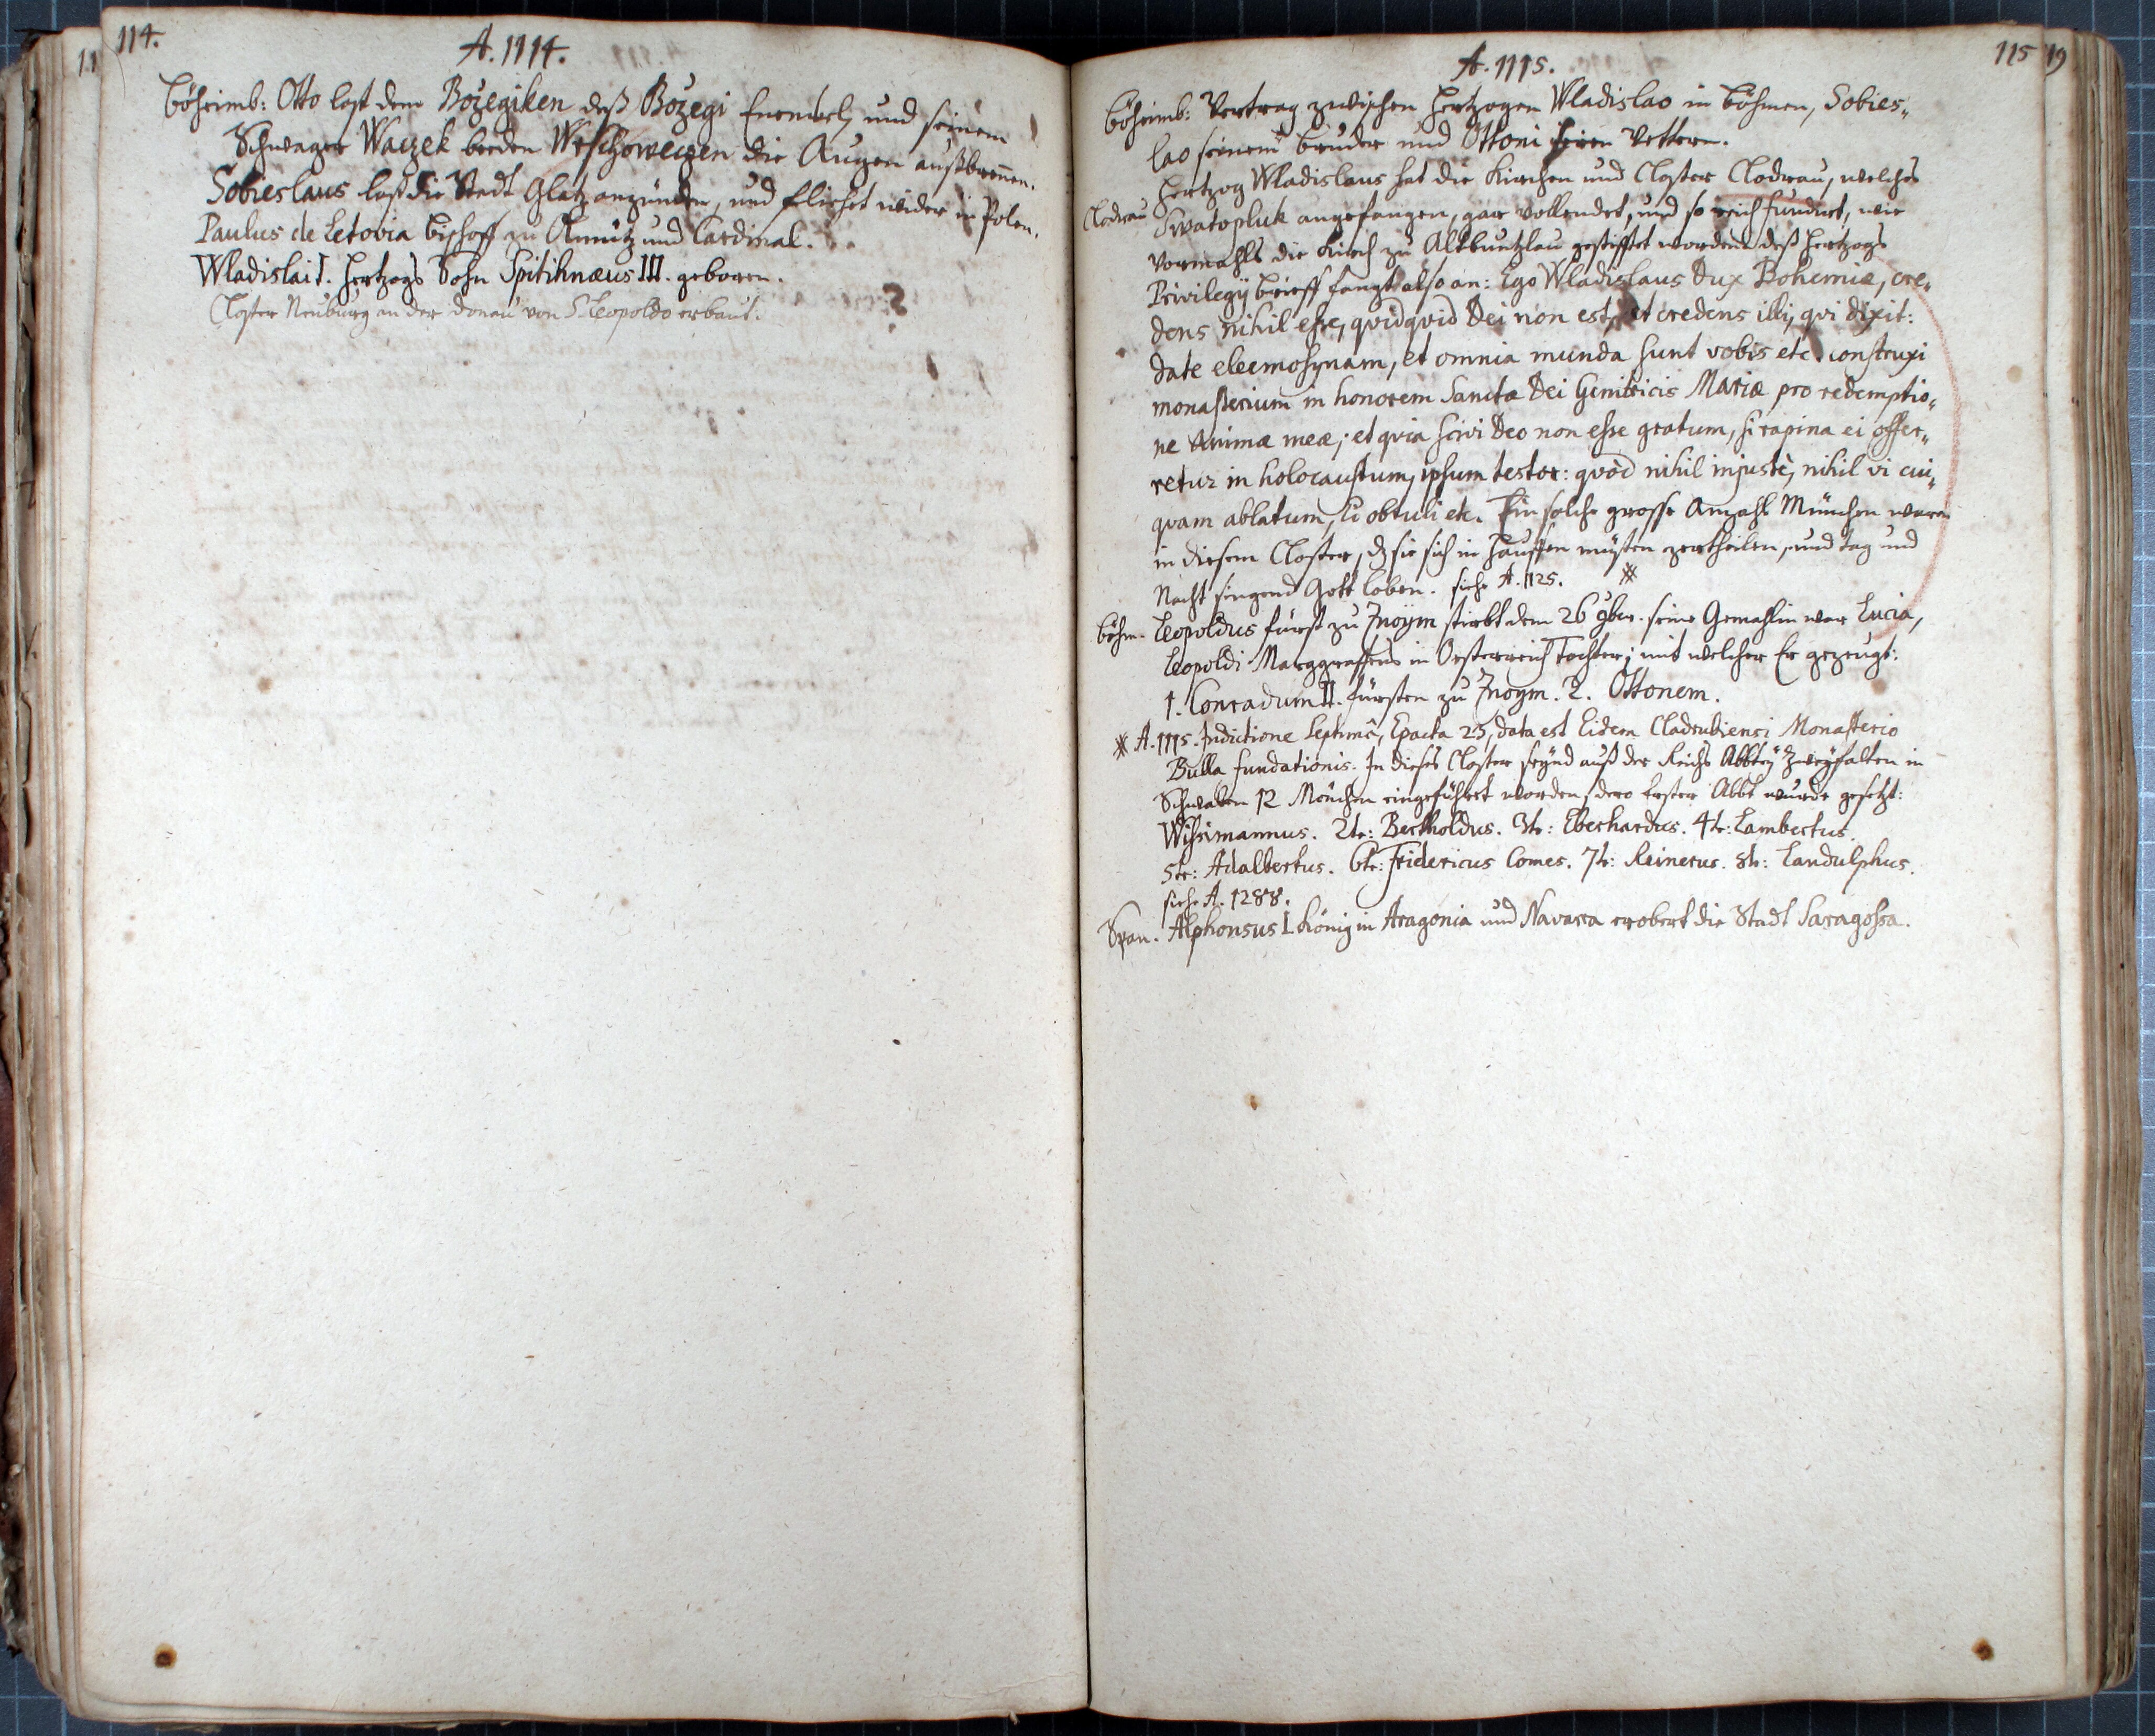 114.
A. 1114.
Böheimb: Otto last dem Bozegiken deß Bozegi und seinem
Schwager Waczek beeden Wrschoweczen die Augen außbrennen.
Sobieslaus last die Stadt Glatz anzünden, und fliehet wider in Polen.
Paulus de Letovia Bischoff zu Olmütz und Cardinal.
Wladislai I. Hertzogs Sohn Spitihnæus III. geboren.
Closter Neuburg an der Donau von S. Leopoldo erbaut.
115
19
11
A. 1115.
Böheimb: Vertrag zwischen Hertzogen Wladislao in Böhmen, Sobies„
lao seinem Bruder und Ottoni ihren Vettern.
Hertzog Wladislaus hat die Kirchen und Closter Clodrau, welches
Clodrau Swatopluk angefangen, gar vollendet, und so reich fundirt, wie
vormahls die Kirch zu Altbuntzlau gestifftet worden: deß Hertzogs
Privilegÿ brieff fangt also an: Ego Wladislaus Dux Bohemiæ, cre„
dens nihil esse, qvidqvid Dei non est, et credens illi, qvi dixit:
date eleemosynam, et omnia munda sunt vobis etc. construxi
monasterium in honorem Sanctæ Dei Genitricis Mariæ pro redemptio„
ne Animæ meæ; et qvia scivi Deo non esse gratum, si rapina ei offer„
retur in holocaustum, ipsum testor: qvòd nihil injustè, nihil vi cui„
qvam ablatum, Ei obtuli etc. Ein solche grosse Anzahl München waren
in diesem Closter, dz sie sich in hauffen müsten zertheilen, und tag und
Nacht singend Gott loben. siehe A. 1125. ⁂
Böhm. Leopoldus fürst zu Znoym stirbt den 26 9ber. seine Gemahlin war Lucia,
Leopoldi Marggraffens in Oesterreich Tochter; mit welcher Er gezeugt:
1. Conradum II. fürsten zu Znoym. 2. Ottonem.
⁂ A. 1115. Indictione Septimâ, Epacta 23, data est Eidem Cladrubiensi Monasterio
Bulla fundationis. In dieses Closter seÿnd auß der Reichs Abbteÿ Zweÿfalten in
Schwaben 12 Mönchen eingeführt worden, dero Erster Abbt wurde gesetzt:
Wissimannus. 2te: Bertholdus. 3te: Eberhardus. 4te: Lambertus.
5te: Adalbertus. 6te: Fridericus Comes. 7te: Reinerus. 8te: Landulphus.
siehe A. 1288.
Span. Alphonsus I König in Aragonia und Navarra erobert die Stadt Saragossa.